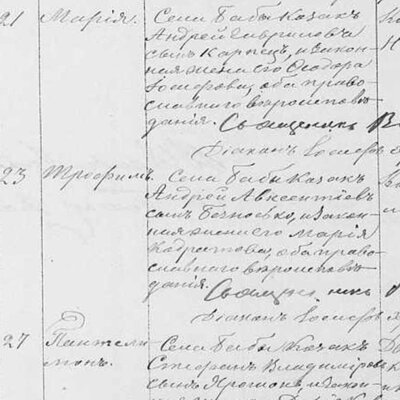 21 Марія. Села Бабы Казакъ
Андрей Гавриловъ
сынъ Карпецъ, и закон-
ная жена его Ѳеодора
Іосифова, оба право-
славнаго вѣроисповѣ-
данія. Священникъ
Діаконъ Іосифъ
23 Трофимъ Села Бабы Казакъ
Андрей Авксентіевъ
сынъ и закон-
ная жена его Марія
Кодратова, оба право-
славнаго вѣроисповѣ-
данія.
Священникъ
Діаконъ Іосифъ
27 Пантелеи-
монъ. Села Бабы Козакъ
Стефанъ Владиміровъ
сынъ и закон-